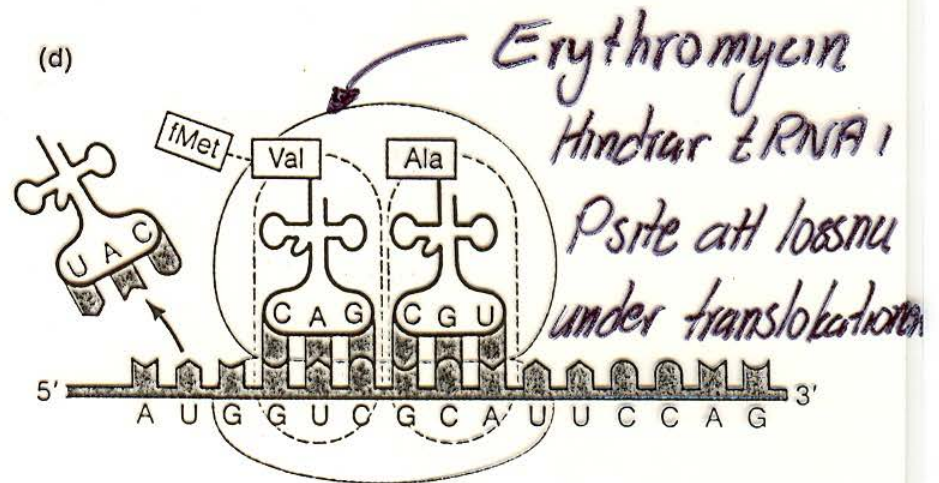 (d)
Erythromycin
Hindrar tRNA i
Psite att lossna
under translokationen
fMet
Val
Ala
U A C
C A G
C G U
5′
3′
A U G G U C G C A U U C C A G